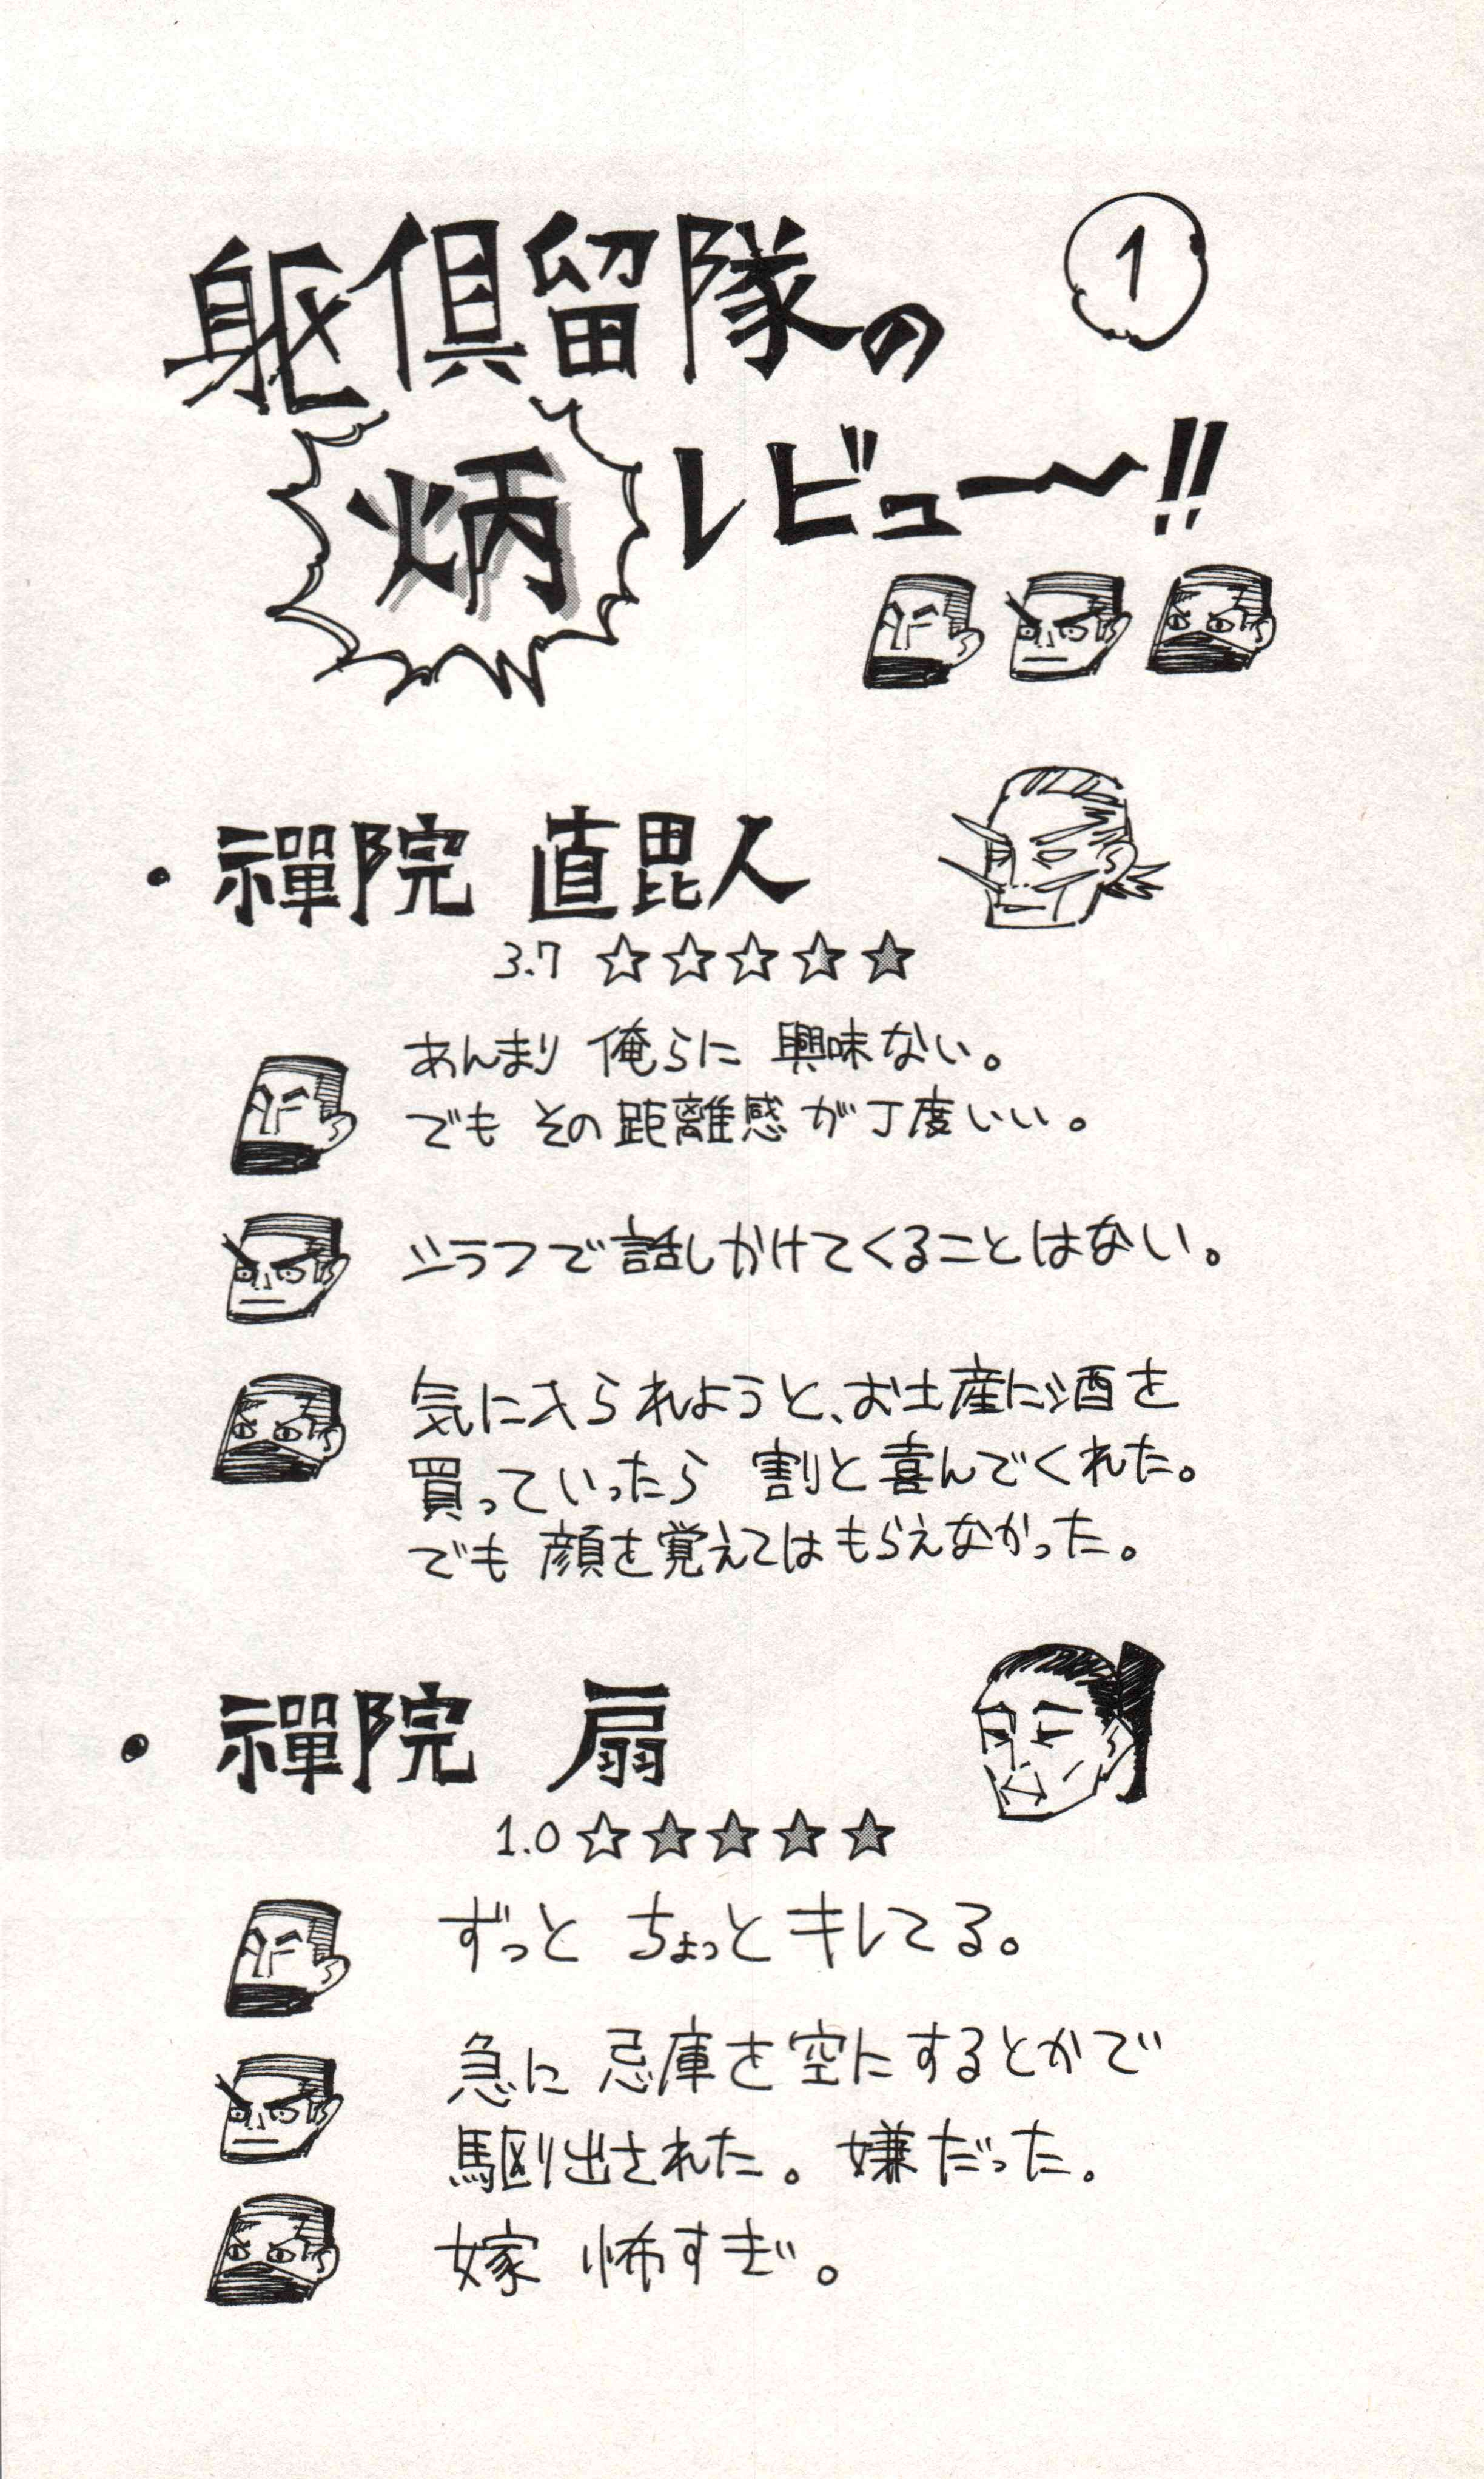 躯倶留隊の
①
炳レビュー〜!!
・禪院 直毘人
3.7 ☆☆☆☆★
あんまり 俺らに 興味ない。
でも その距離感が丁度いい。
シラフで話しかけてくることはない。
気に入られようと、お土産に酒を
買っていったら 割と喜んでくれた。
でも 顔を覚えてはもらえなかった。
・禪院 扇
1.0 ☆★★★★
ずっと ちょっとキレてる。
急に 忌庫を空にするとかで
駆り出された。嫌だった。
嫁 怖すぎ。